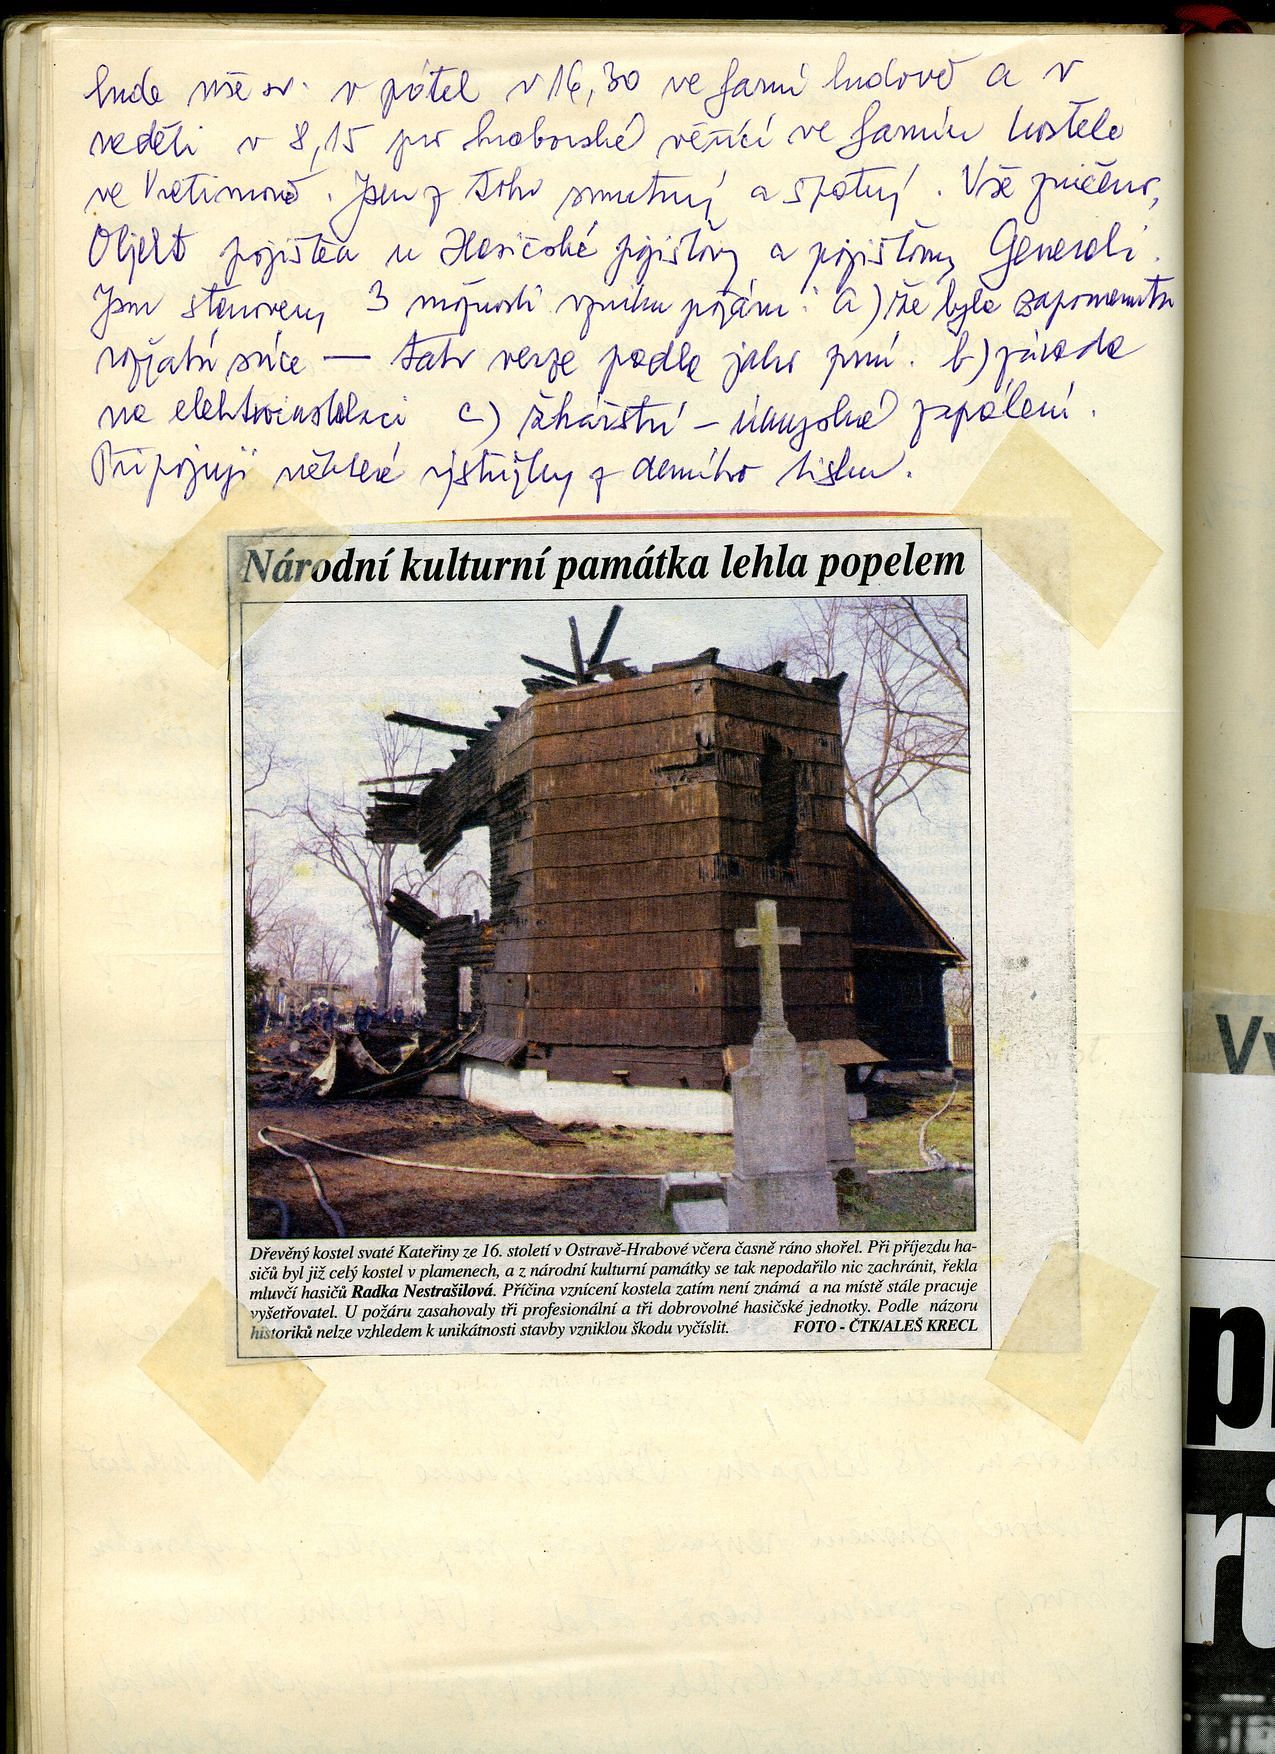 bude mše sv. v pátek v 16,30 ve farní budově a v
neděli v 8,15 pro hrabovské věřící ve farním kostele
ve Vratimově. Jsem z toho smutný a špatný. Vše zničeno,
Objekt pojištěn u Hasičské pojišťovny a pojišťovny Generali.
Jsou stanoveny 3 možnosti vzniku požáru: a) že byla zapomenuta
rozžatá svíce — tato verze padla jako první. b) závada
na elektroinstalaci c) žhářství – úmyslné zapálení.
Připojuji některé výstřižky z denního tisku.
Národní kulturní památka lehla popelem
Dřevěný kostel svaté Kateřiny ze 16. století v Ostravě-Hrabové včera časně ráno shořel. Při příjezdu ha-
sičů byl již celý kostel v plamenech, a z národní kulturní památky se tak nepodařilo nic zachránit, řekla
mluvčí hasičů Radka Nestrašilová. Příčina vznícení kostela zatím není známá a na místě stále pracuje
vyšetřovatel. U požáru zasahovaly tři profesionální a tři dobrovolné hasičské jednotky. Podle názoru
historiků nelze vzhledem k unikátnosti stavby vzniklou škodu vyčíslit. FOTO - ČTK/ALEŠ KRECL